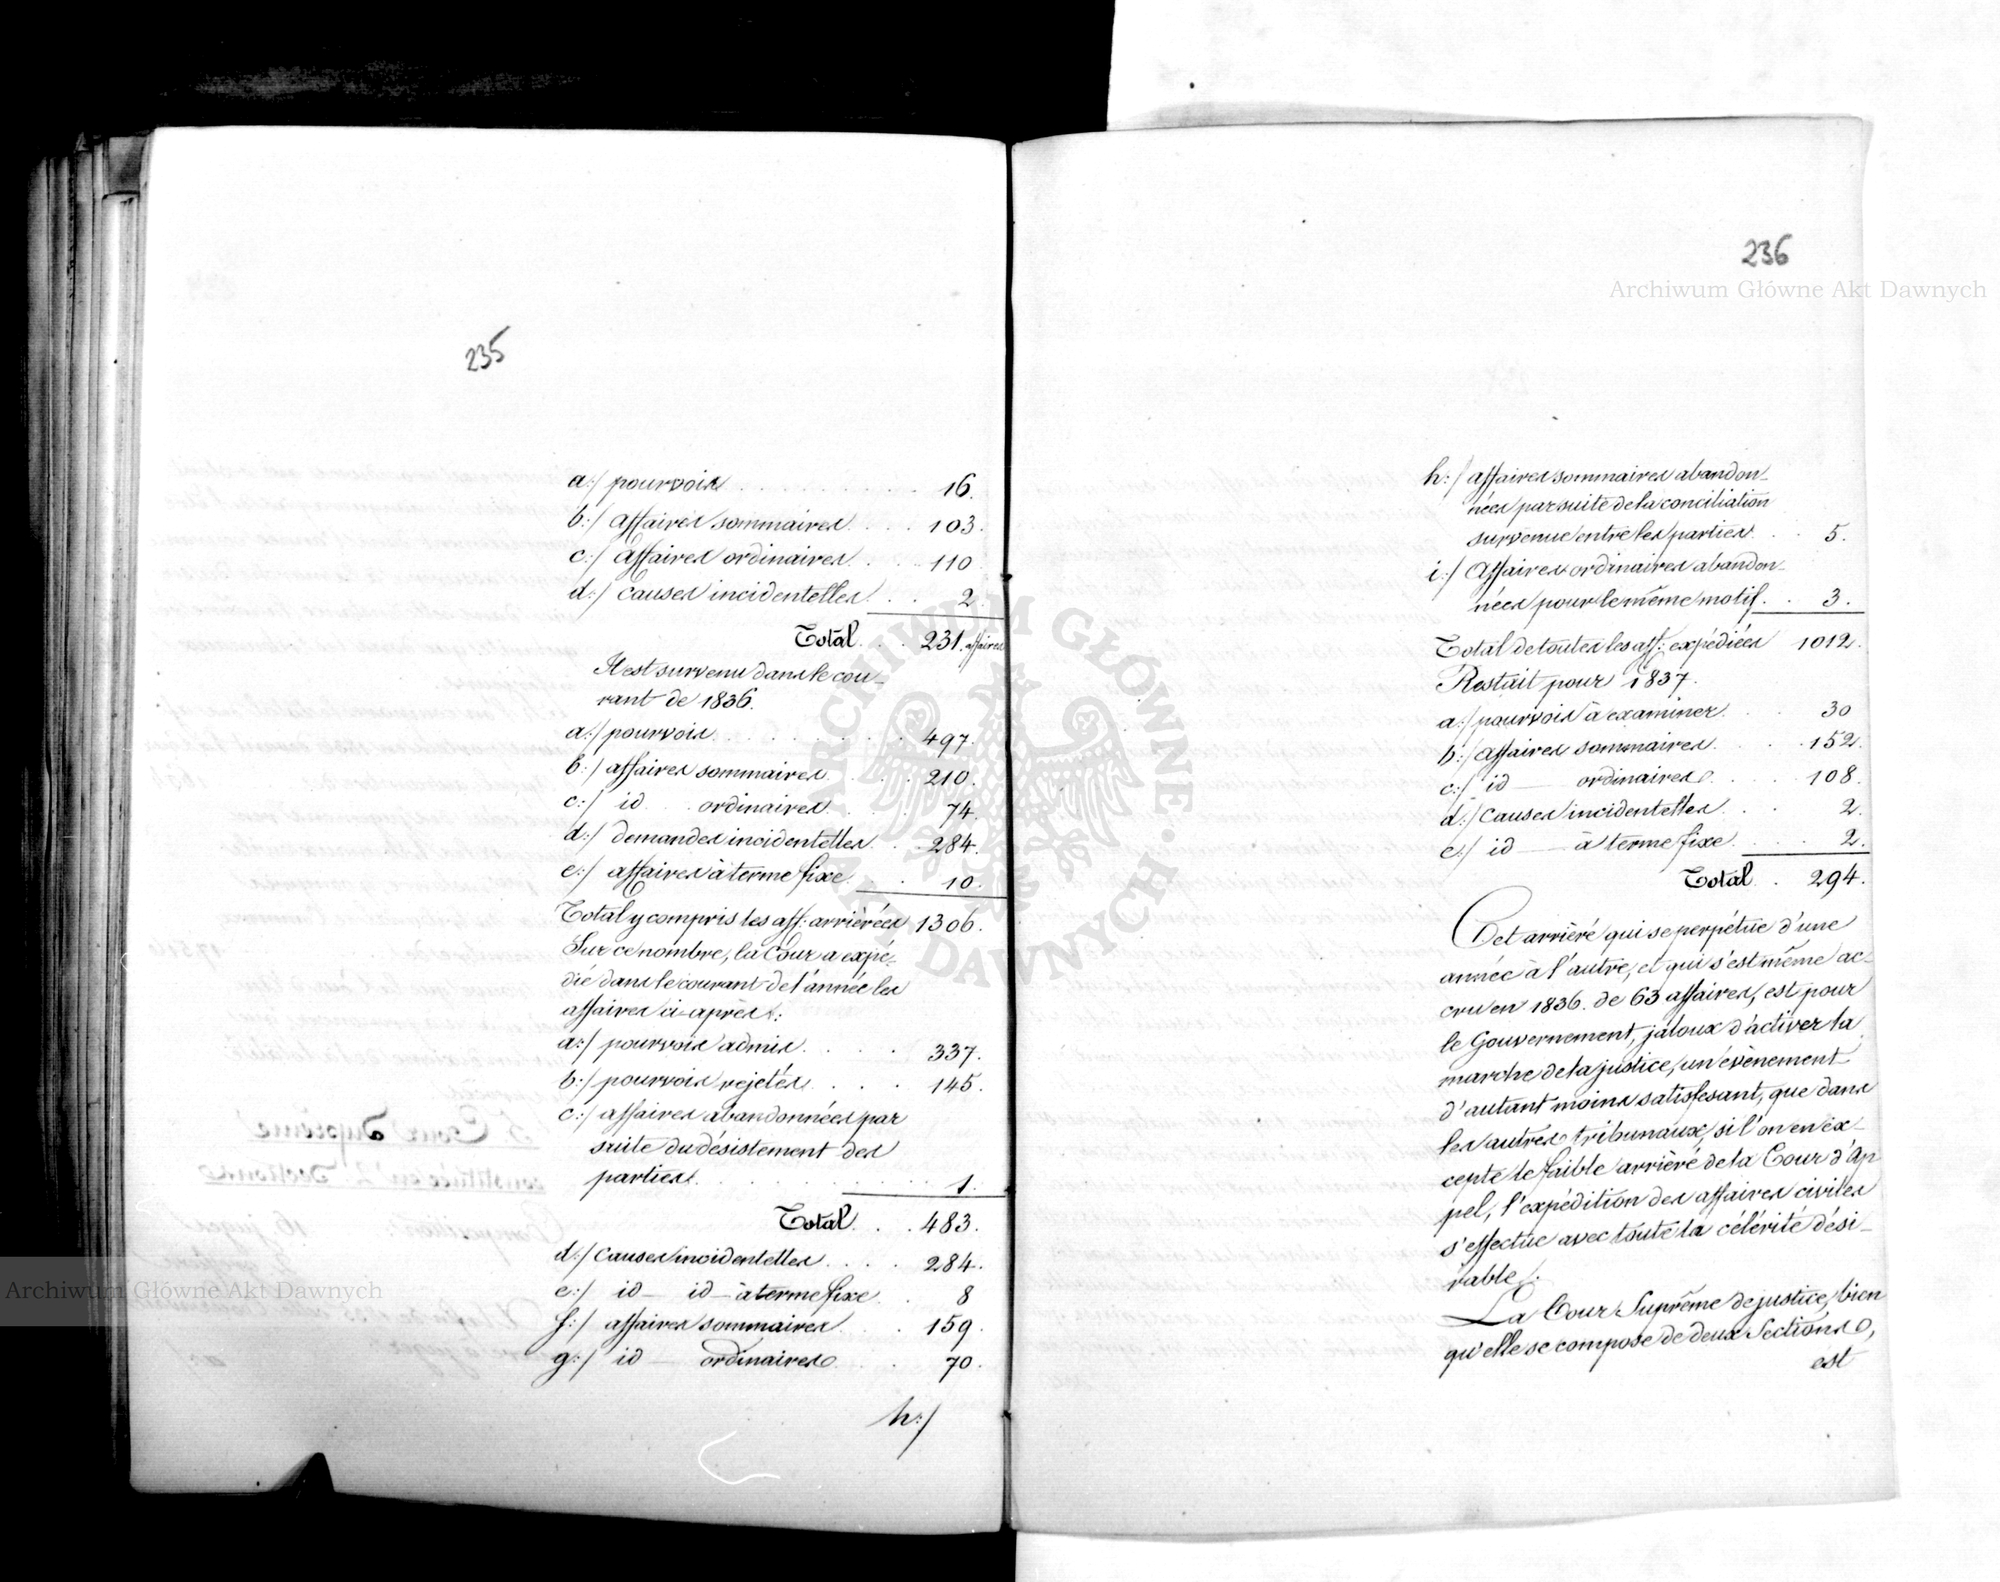 235
a:/ pourvois . . . . . . . . . 16.
b:/ affaires sommaires . . . 103.
c:/ affaires ordinaires . . . 110
d:/ causes incidentelles . . 2.
Total . . 231. affaires
Il est survenu dans le cou-
rant de 1836.
a:/ pourvois . . . . . . . . . 497.
b:/ affaires sommaires . . . 210.
c:/ id . . ordinaires . . . 74.
d:/ demandes incidentelles . . 284.
e:/ affaires à terme fixe . . 10.
Total y compris les aff: arriérées 1306.
Sur ce nombre, la Cour a expé-
dié dans le courant de l'année les
affaires ci-après:
a:/ pourvois admis . . . . 337.
b:/ pourvois rejetés . . . . 145.
c:/ affaires abandonnées par
suite du désistement des
parties . . . . . . . . . 1.
Total . . . 483.
d:/ causes incidentelles . . . . 284.
e:/ id — id — à terme fixe . . 8
f:/ affaires sommaires . . . 159.
g:/ id — ordinaires . . . 70.
h:/
236
h:/ affaires sommaires abandon-
nées par suite de la conciliation
survenue entre les parties . . . 5.
i:/ affaires ordinaires abandon-
nées pour le même motif . . 3.
Total de toutes les aff: expédiées 1012.
Restait pour 1837.
a:/ pourvois à examiner . . . 30
b:/ affaires sommaires . . . 152.
c:/ id — ordinaires . . . . 108.
d:/ causes incidentelles . . . 2.
e:/ id — à terme fixe . . . . 2.
Total . . 294.
Cet arriéré qui se perpétue d'une
année à l'autre, et qui s'est même ac-
cru en 1836. de 63 affaires, est pour
le Gouvernement, jaloux d'activer la
marche de la justice, un évènement
d'autant moins satisfesant, que dans
les autres tribunaux, si l'on en ex-
cepte le faible arriéré de la Cour d'Ap-
pel, l'expédition des affaires civiles
s'effectue avec toute la célérité dési-
rable.
La Cour Suprême de justice, bien
qu'elle se compose de deux Sections,
est
Archiwum Główne Akt Dawnych
Archiwum Główne Akt Dawnych
ARCHIWUM GŁÓWNE AKT DAWNYCH